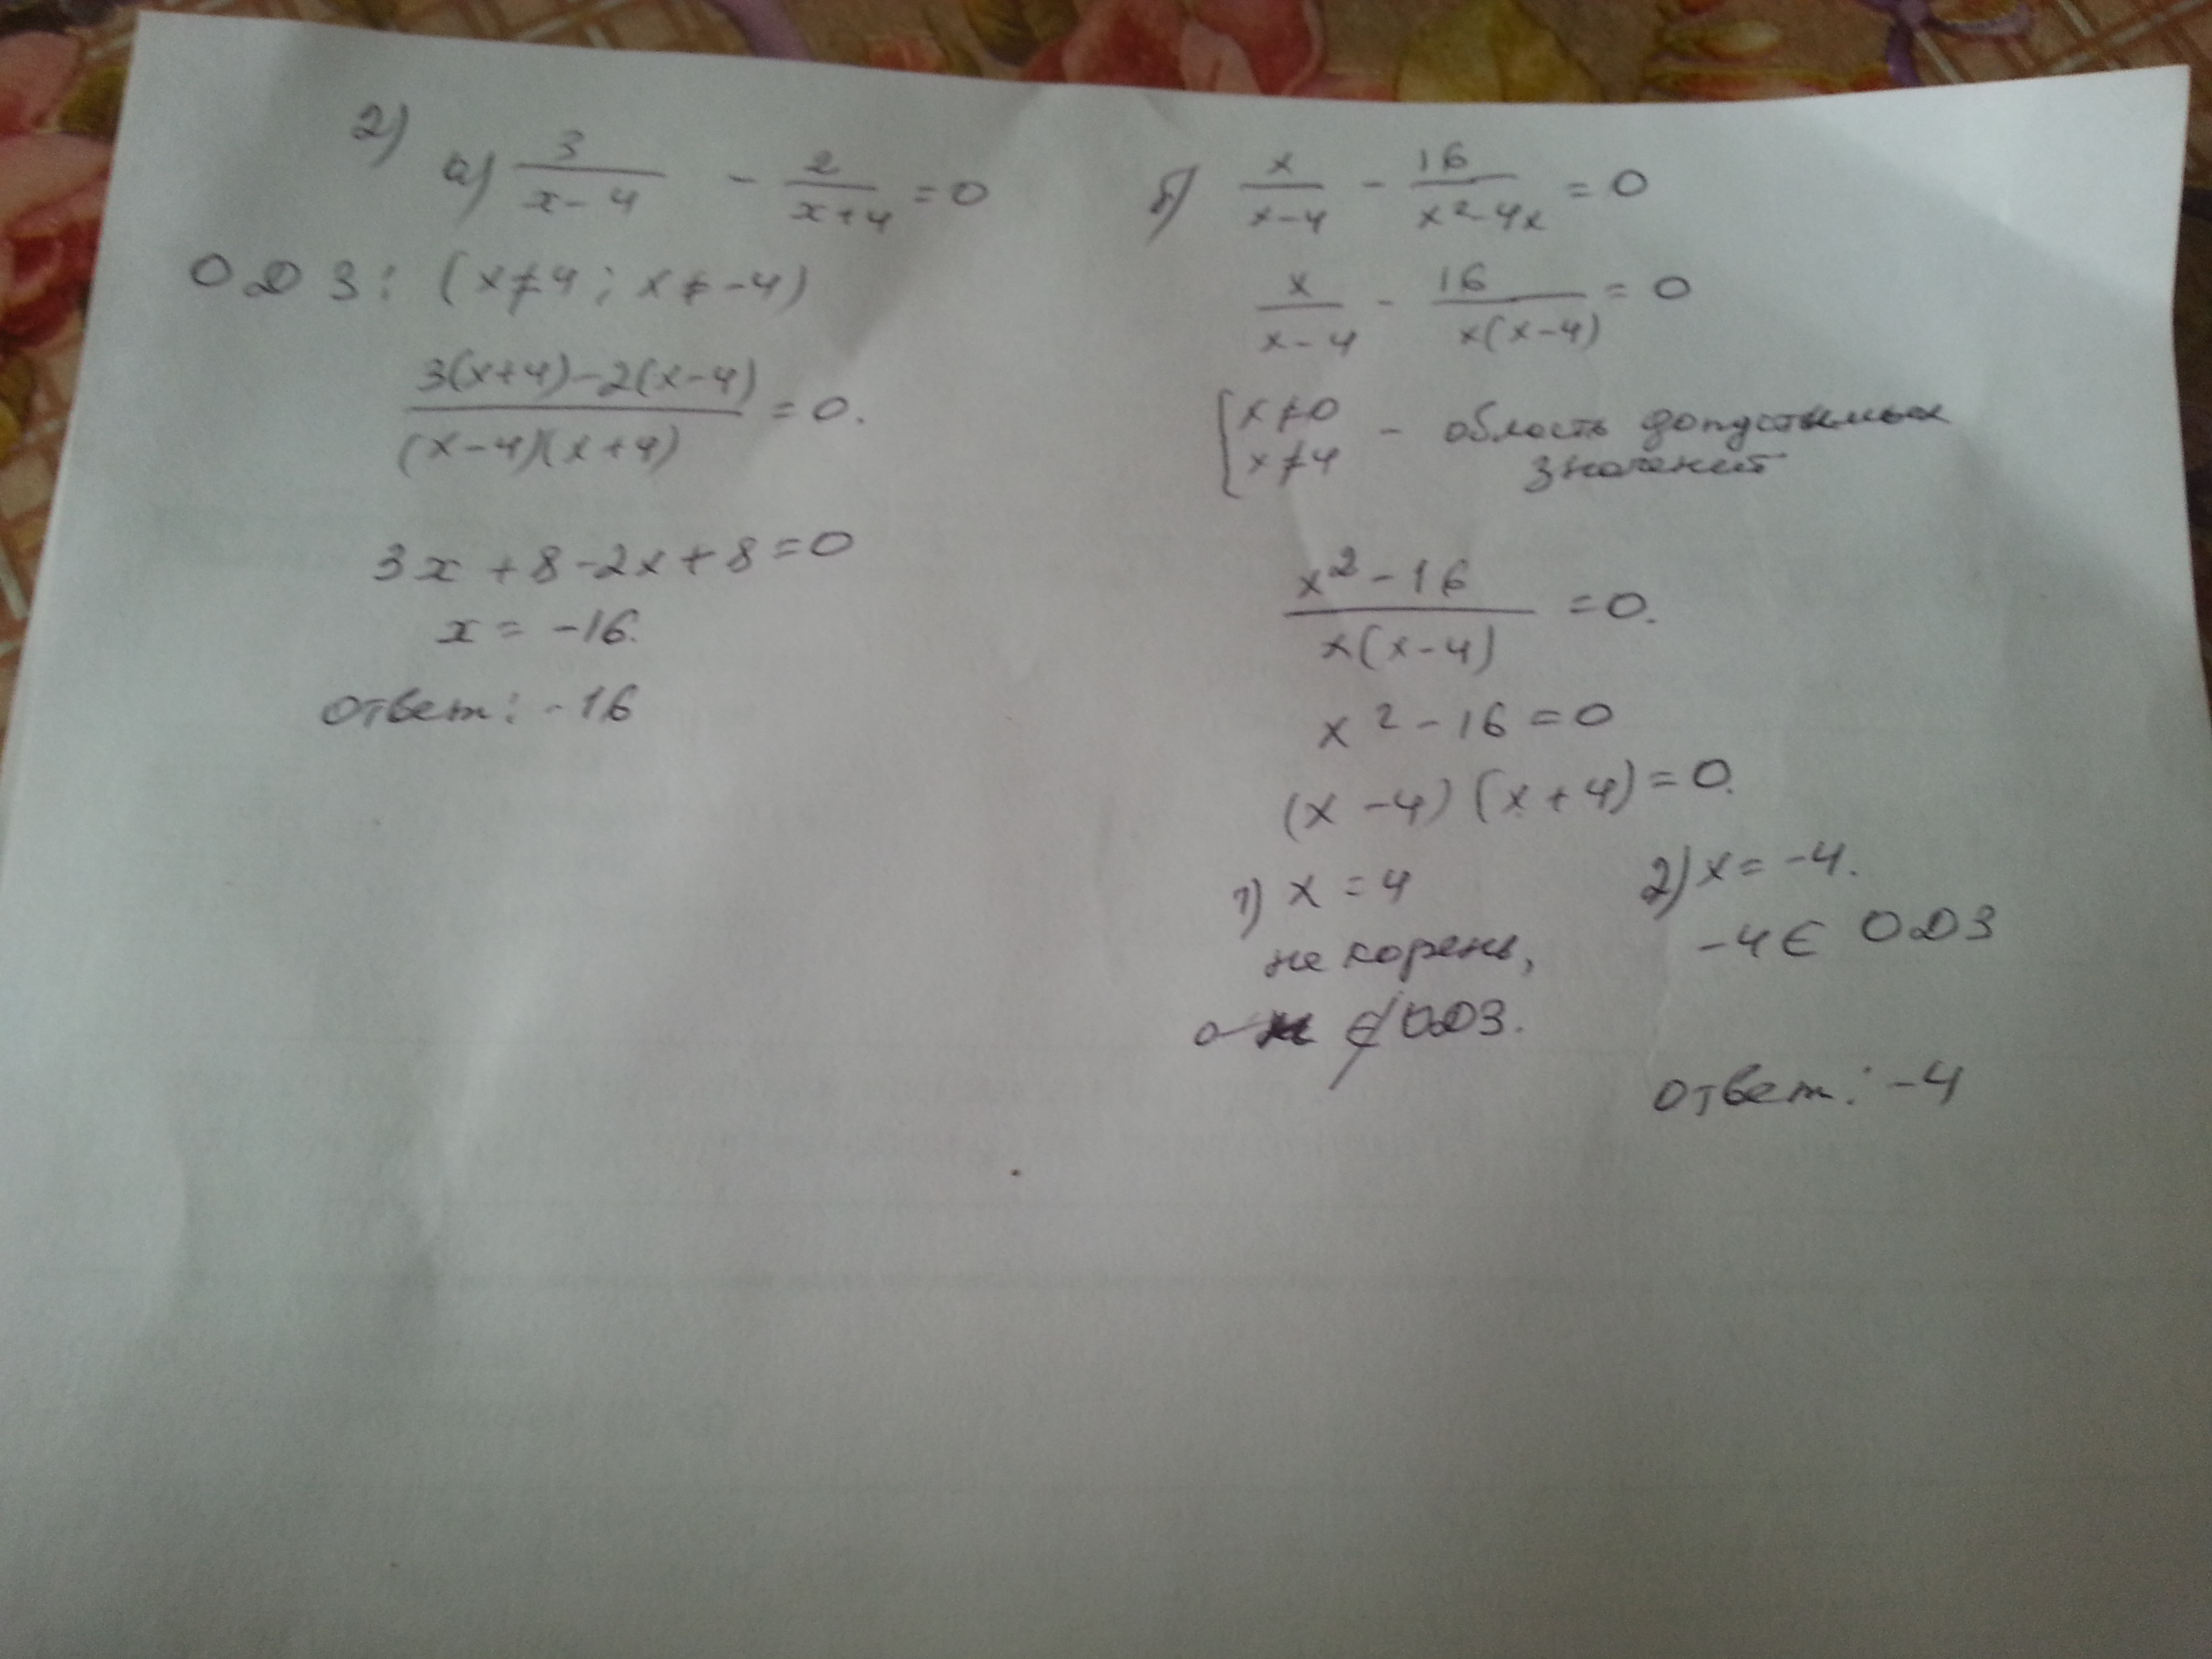 2)
а) 3/(x-4) - 2/(x+4) = 0
ОДЗ: (x≠4; x≠-4)
(3(x+4)-2(x-4))/((x-4)(x+4)) = 0.
3x + 8 - 2x + 8 = 0
x = -16.
Ответ: -16
б) x/(x-4) - 16/(x²-4x) = 0
x/(x-4) - 16/(x(x-4)) = 0
{x≠0
x≠4 - область допустимых
значений
(x²-16)/(x(x-4)) = 0.
x² - 16 = 0
(x-4)(x+4) = 0.
1) x = 4
не корень,
∉ ОДЗ.
2) x = -4.
-4 ∈ ОДЗ
Ответ: -4